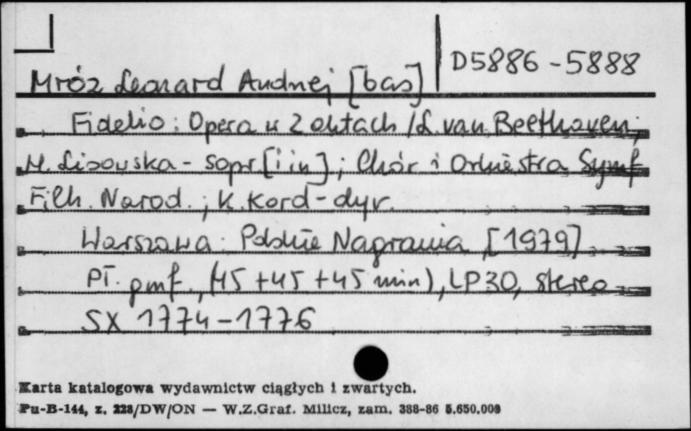 D5886-5888
Mróz Leonard Andrzej [bas]
Fidelio : Opera w 2 aktach / L. van Beethoven ;
H. Lisowska - sopr [i in] ; Chór i Orkiestra Symf
Filh. Narod. ; K. Kord - dyr.
Warszawa : Polskie Nagrania [1979]
Pł. gmf., (45 + 45 + 45 min), LP30, stereo
SX 1774-1776
Karta katalogowa wydawnictw ciągłych i zwartych.
Pu-B-144, z. 228/DW/ON — W.Z.Graf. Milicz, zam. 388-86 5.650.000